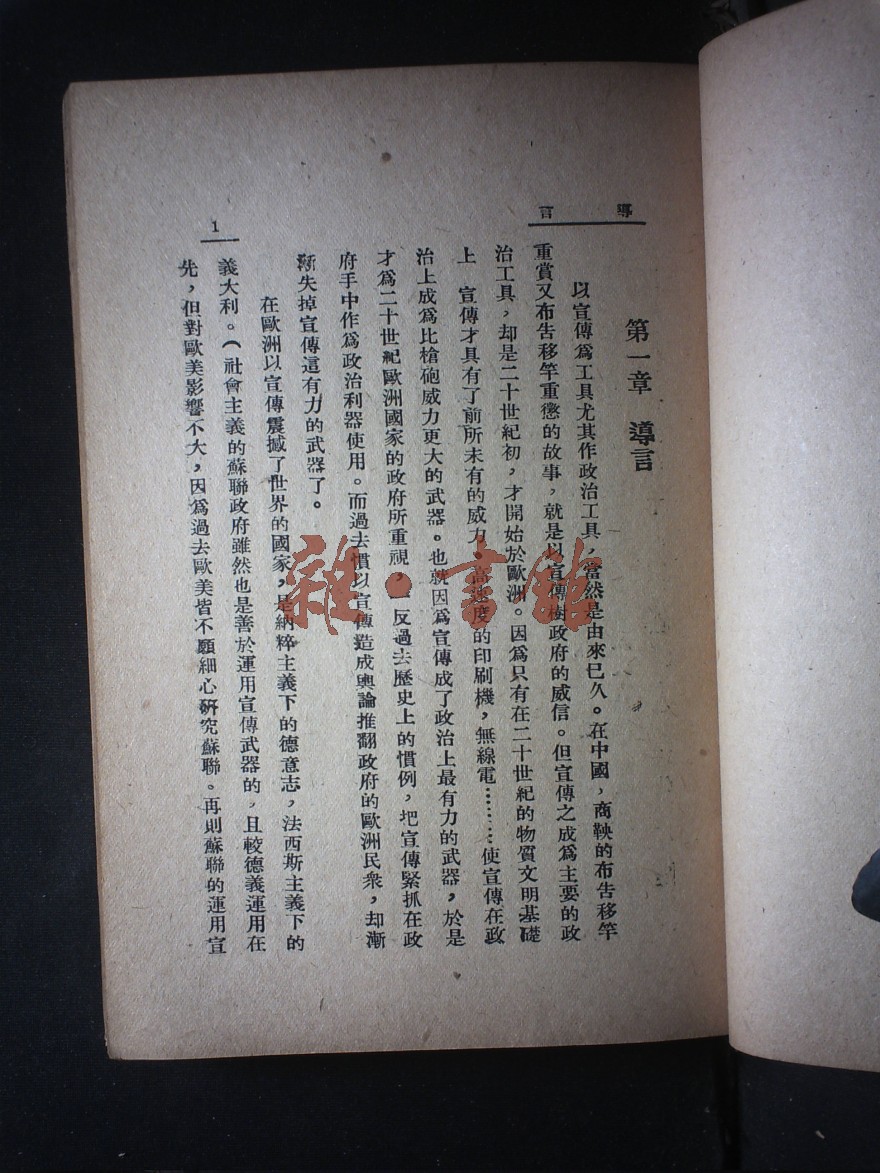 導言
第一章　導言
以宣傳爲工具尤其作政治工具，當然是由來已久。在中國，商鞅的布告移竿
重賞又布告移竿重懲的故事，就是以宣傳樹政府的威信。但宣傳之成爲主要的政
治工具，却是二十世紀初，才開始於歐洲。因爲只有在二十世紀的物質文明基礎
上　宣傳才具有了前所未有的威力。高速度的印刷機，無線電………使宣傳在政
治上成爲比槍砲威力更大的武器。也就因爲宣傳成了政治上最有力的武器，於是
才爲二十世紀歐洲國家的政府所重視，一反過去歷史上的慣例，把宣傳緊抓在政
府手中作爲政治利器使用。而過去慣以宣傳造成輿論推翻政府的歐洲民衆，却漸
漸失掉宣傳這有力的武器了。
在歐洲以宣傳震撼了世界的國家，是納粹主義下的德意志，法西斯主義下的
義大利。（社會主義的蘇聯政府雖然也是善於運用宣傳武器的，且較德義運用在
先，但對歐美影響不大，因爲過去歐美皆不願細心研究蘇聯。再則蘇聯的運用宣
1
雜·書館